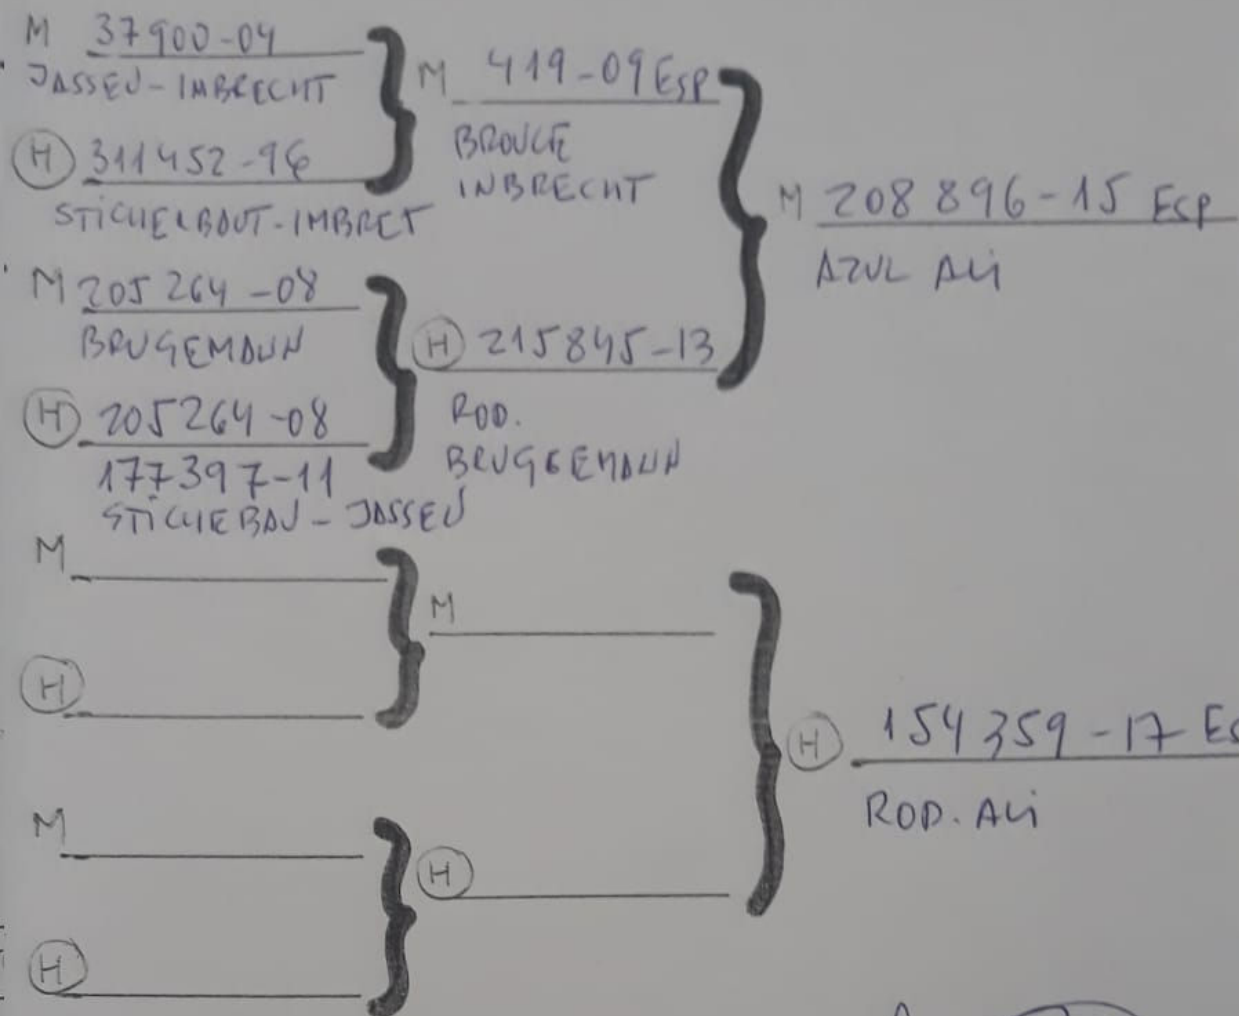 M 37900-04
JASSEN-IMBRECHT
H 311452-96
STICHELBOUT-IMBRET
M 205264-08
BRUGEMANN
H 205264-08
177397-11
STICHEBAU-JASSEN
M 419-09 ESP
BROUCE
INBRECHT
H 215845-13
ROD.
BRUGGEMANN
M 208896-15 ESP
AZUL ALI
M
H
M
H
M
H
H 154359-17 ES
ROD. ALI